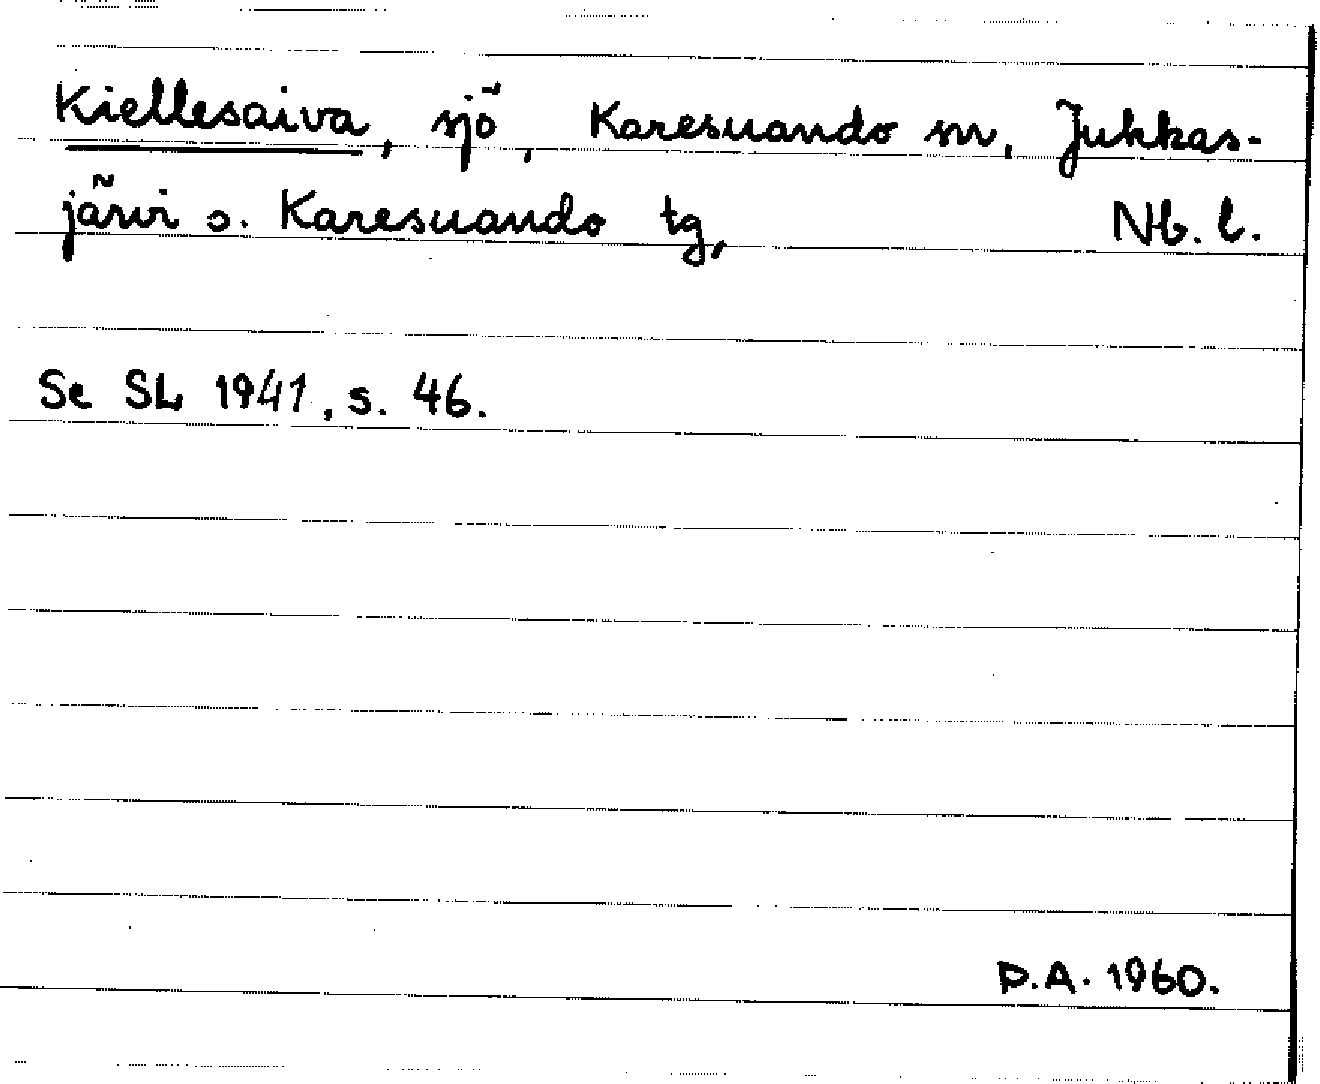 Kiellesaiva, sjö, Karesuando sn, Jukkas-
järvi o. Karesuando tg, Nb. l.
Se SL 1941, s. 46.
D.A. 1960.